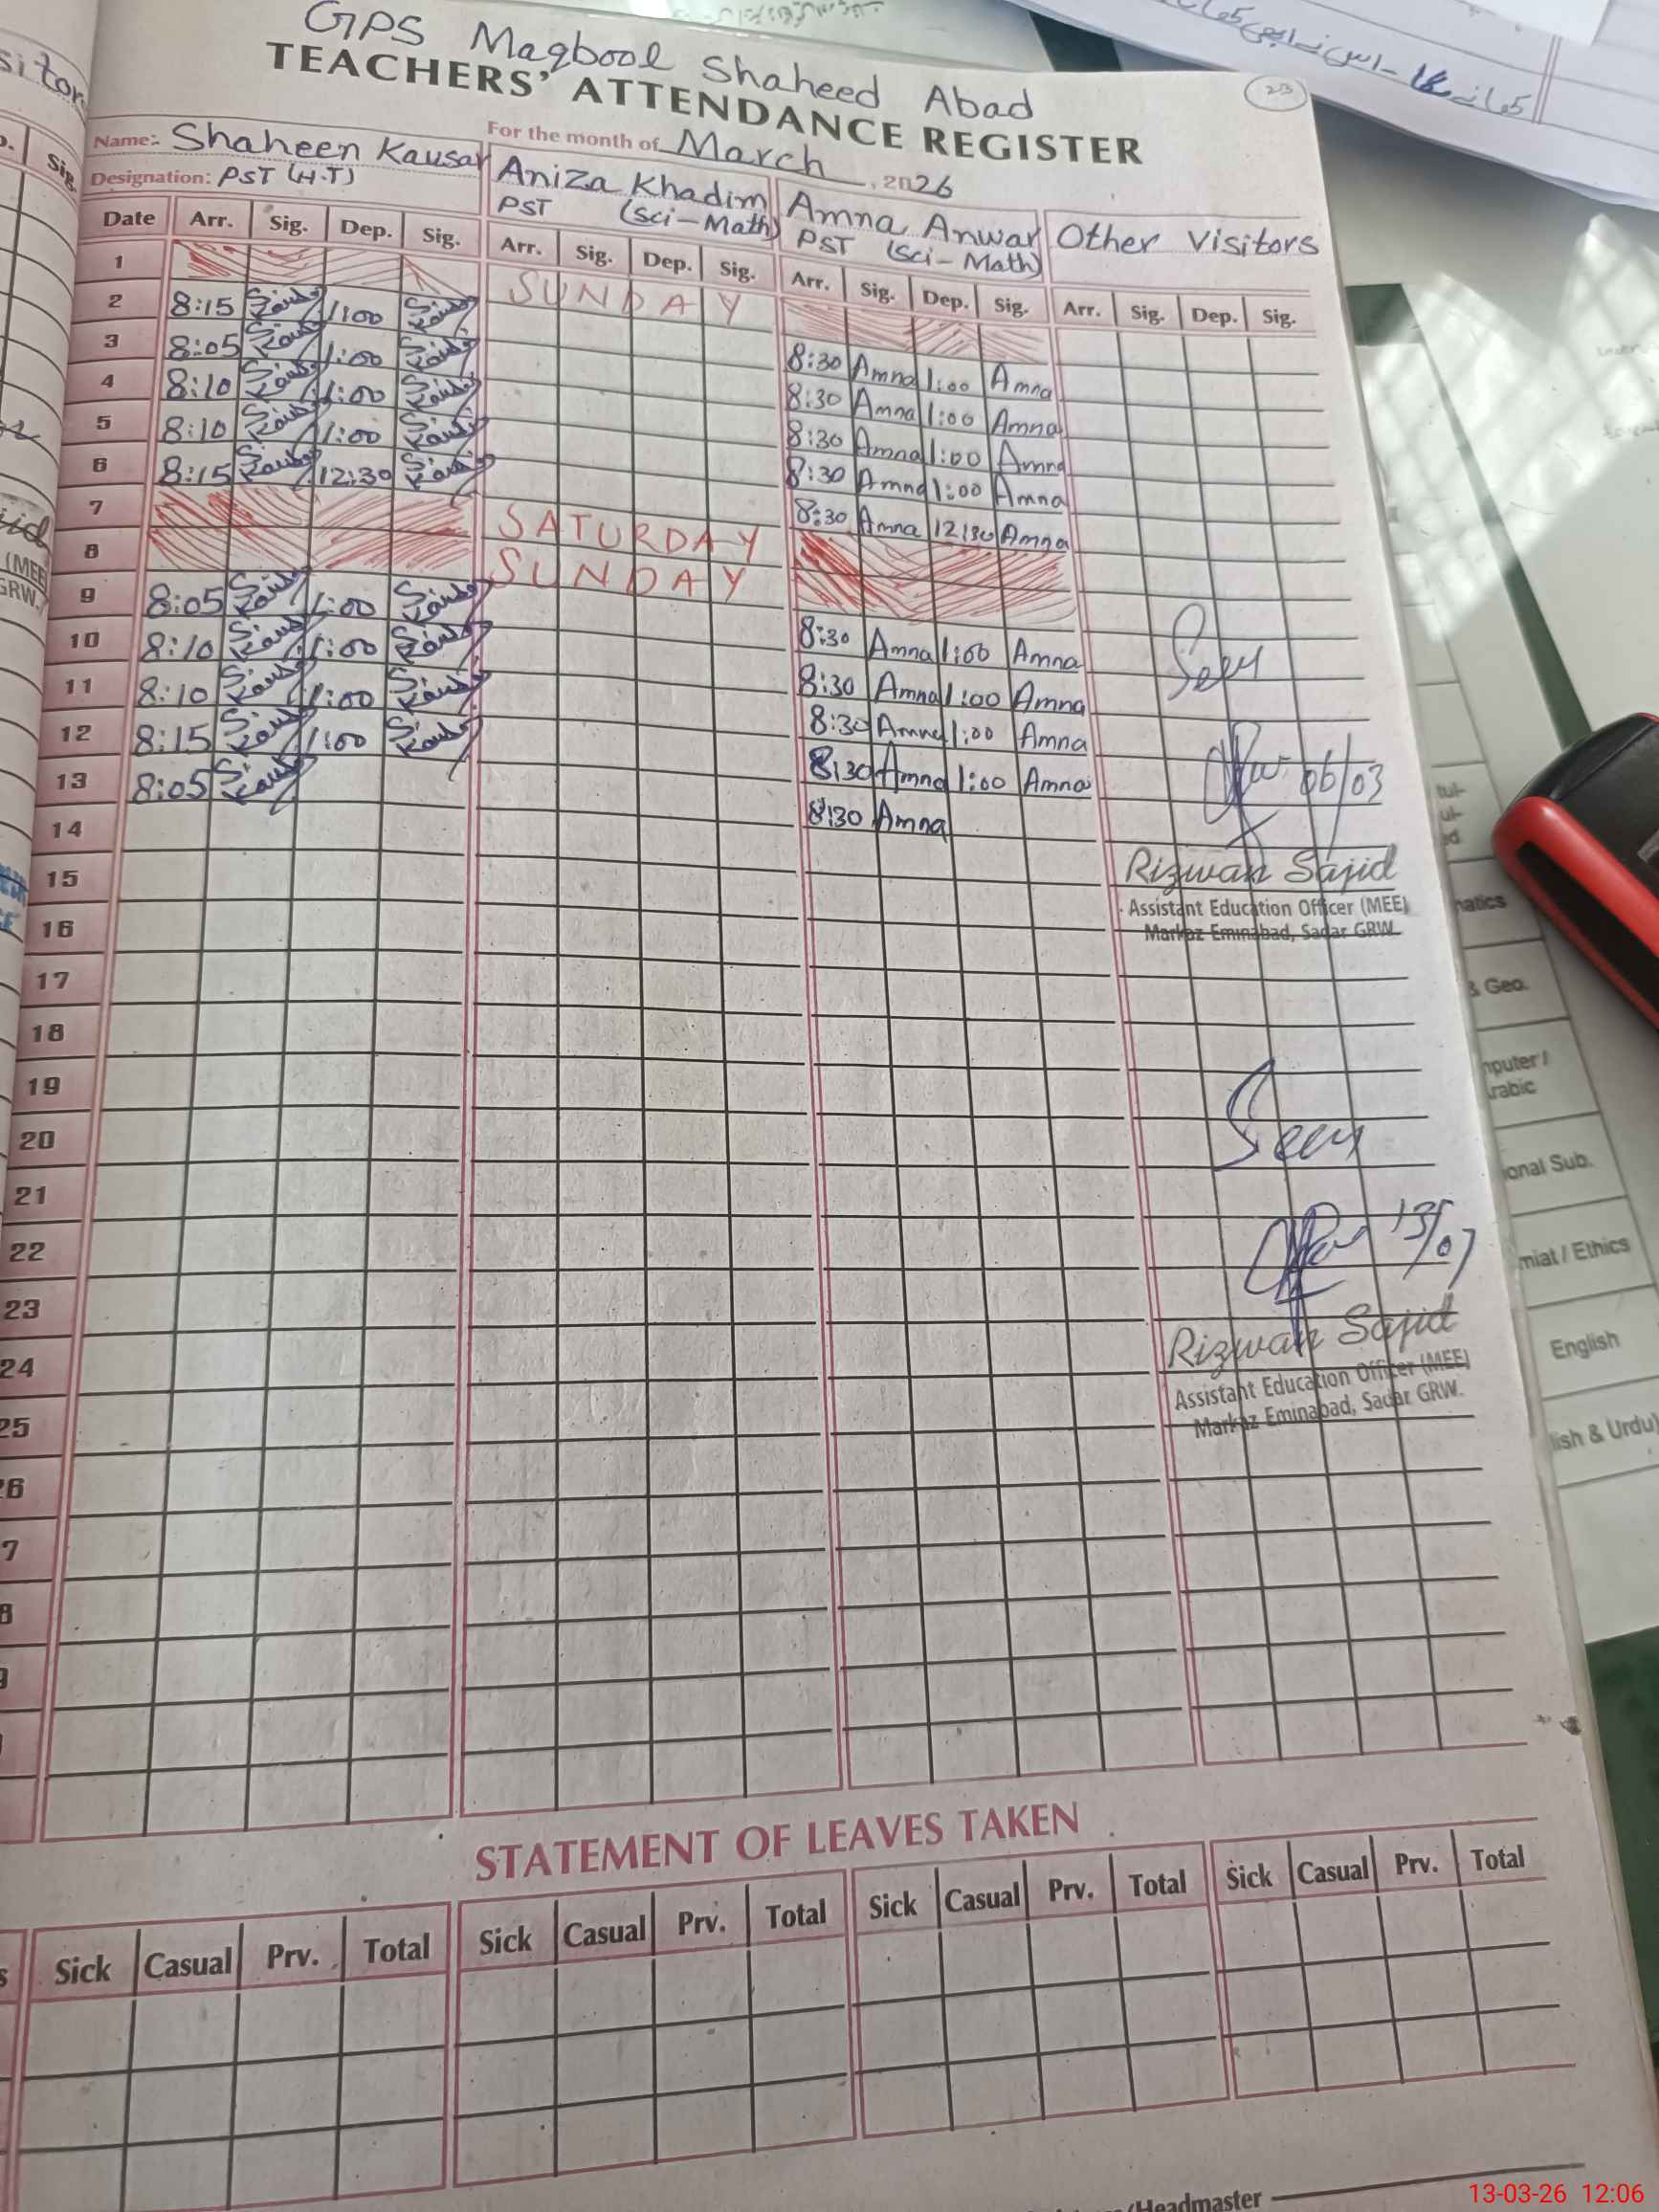 GPS Maqbool Shaheed Abad
TEACHERS' ATTENDANCE REGISTER
23
Name: Shaheen Kausar
For the month of March, 2026
Designation: PST (H.T)
Aniza Khadim
PST (Sci-Math)
Amna Anwar
PST (Sci-Math)
Other Visitors
Date Arr. Sig. Dep. Sig. Arr. Sig. Dep. Sig. Arr. Sig. Dep. Sig. Arr. Sig. Dep. Sig.
1 SUNDAY
2 8:15 1:00 8:30 Amna 1:00 Amna
3 8:05 1:00 8:30 Amna 1:00 Amna
4 8:10 1:00 8:30 Amna 1:00 Amna
5 8:10 1:00 8:30 Amna 1:00 Amna
6 8:15 12:30 8:30 Amna 12:30 Amna
7 SATURDAY
8 SUNDAY
9 8:05 1:00 8:30 Amna 1:00 Amna
10 8:10 1:00 8:30 Amna 1:00 Amna
11 8:10 1:00 8:30 Amna 1:00 Amna
12 8:15 1:00 8:30 Amna 1:00 Amna
13 8:05 8:30 Amna
14
15
16
17
18
19
20
21
22
23
24
25
Seen
06/03
Rizwan Sajid
Assistant Education Officer (MEE)
Markaz Eminabad, Sadar GRW.
Seen
Rizwan Sajid
Assistant Education Officer (MEE)
Markaz Eminabad, Sadar GRW.
STATEMENT OF LEAVES TAKEN
Sick Casual Prv. Total Sick Casual Prv. Total Sick Casual Prv. Total Sick Casual Prv. Total
/Headmaster
& Geo.
English
13-03-26 12:06